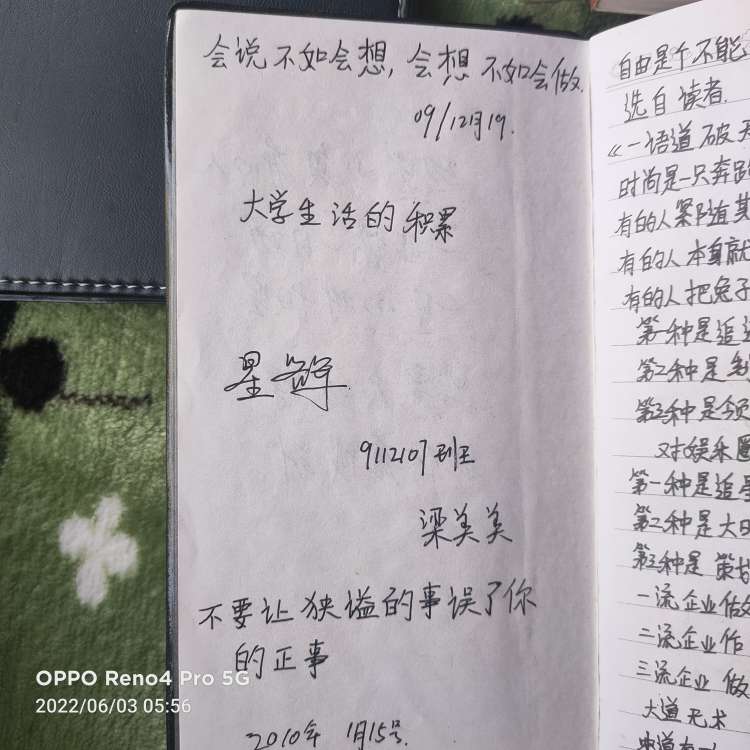 会说不如会想,会想不如会做.
09/12月19.
大学生活的积累
星
9112107班
梁美美
不要让狭谥的事误了你
的正事
2010年 1月15号.
自由是个不能
选自 读者.
《一语道破天
时尚是一只奔跑
有的人紧随其
有的人本身就
有的人把兔子
第一种是追逐
第二种是
第三种是领
对娱乐圈
第一种是追星
第二种是大
第三种是 策划
一流企业做
二流企业作
三流企业 做
大道无术
OPPO Reno4 Pro 5G
2022/06/03 05:56